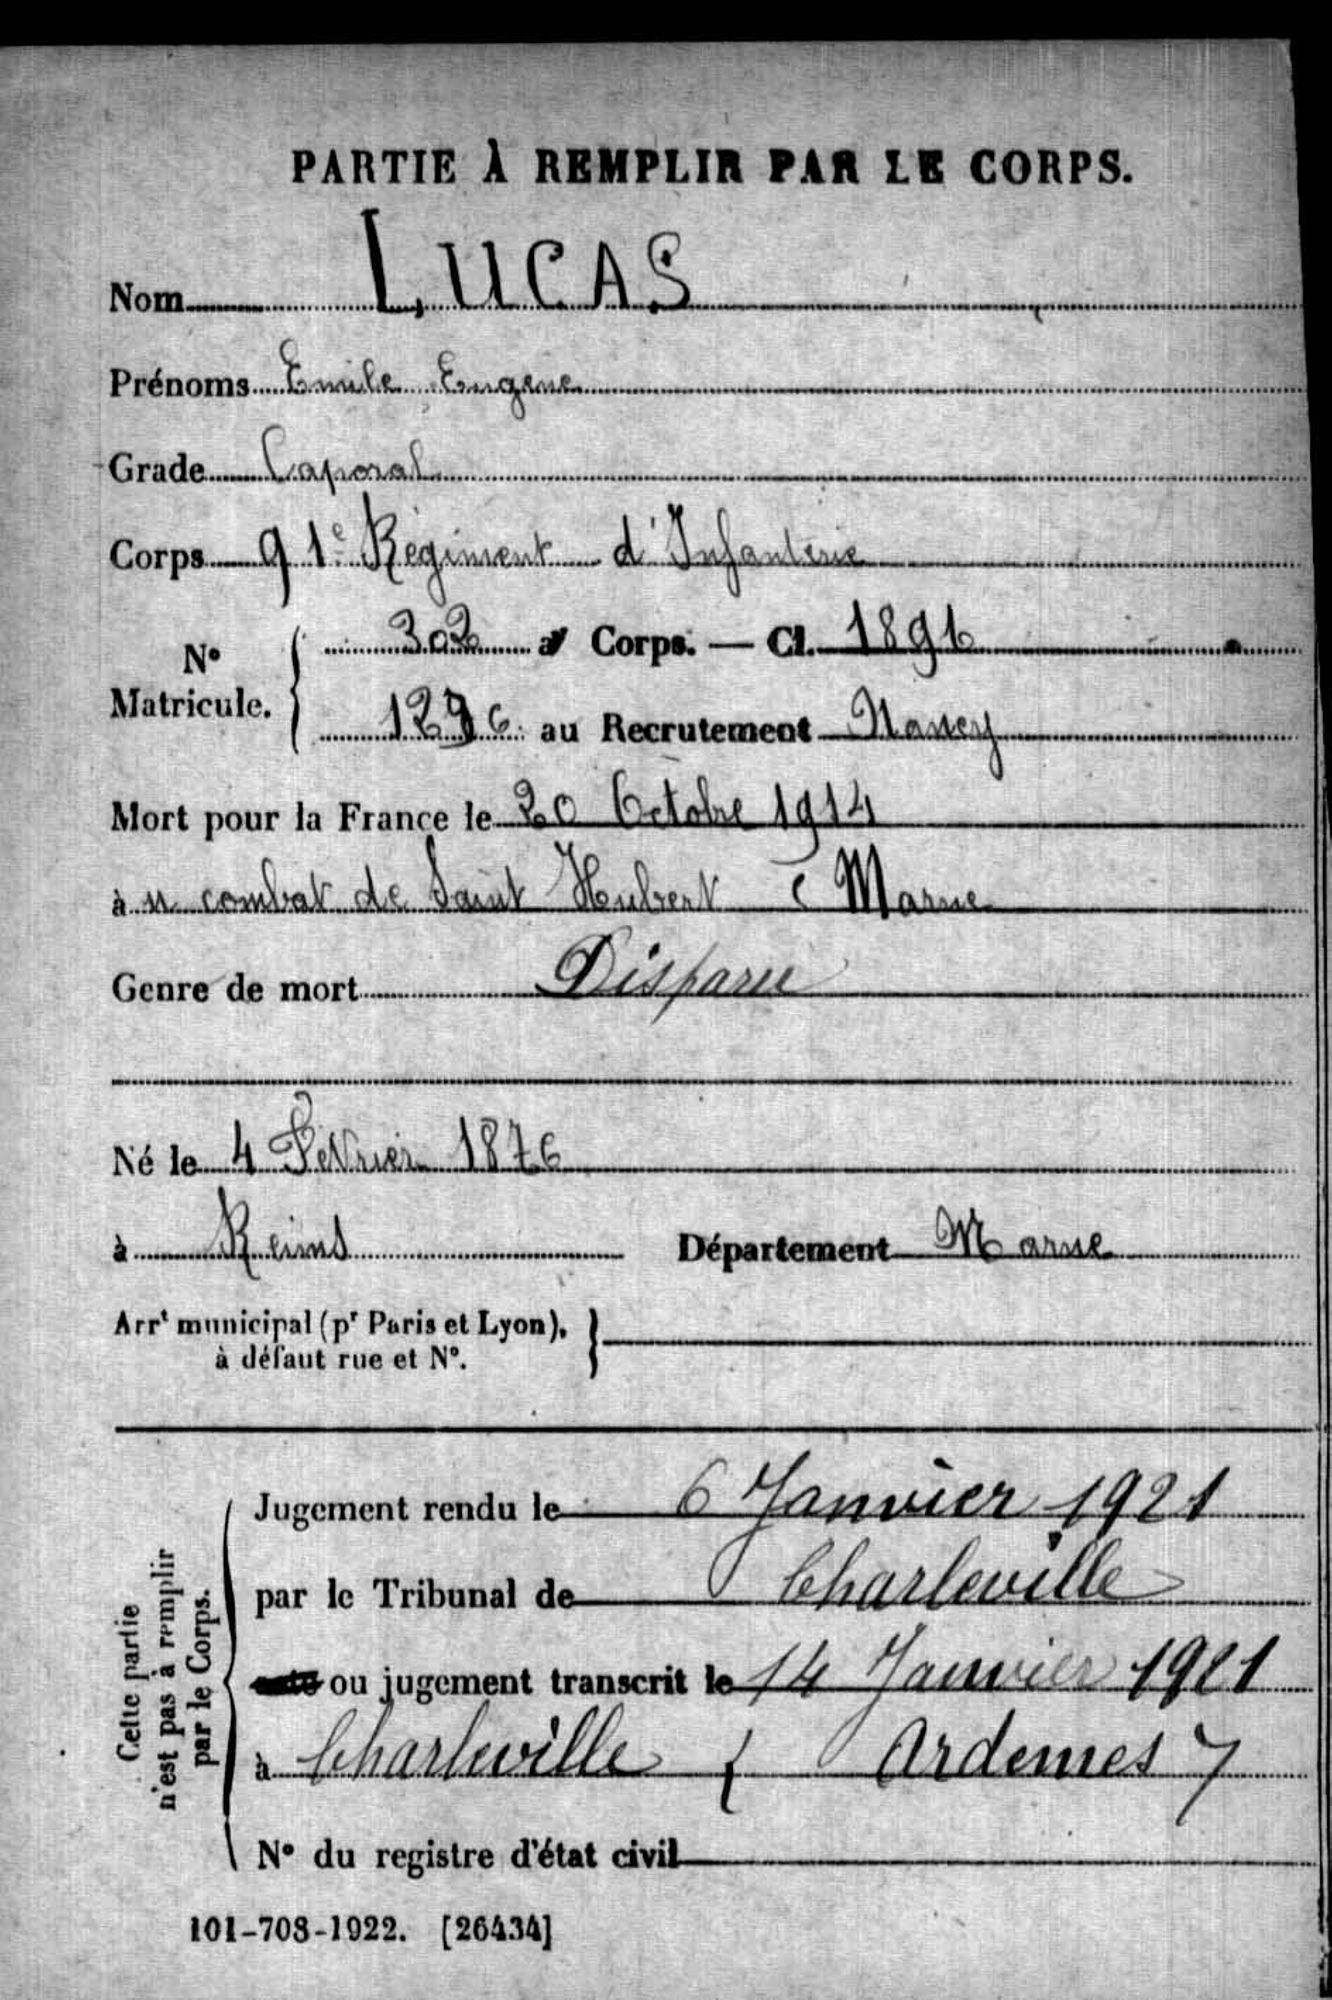 PARTIE À REMPLIR PAR LE CORPS.
Nom LUCAS
Prénoms Emile Eugene
Grade Caporal
Corps 91e Régiment d'Infanterie
N° Matricule. 302 au Corps. — Cl. 1896
1296 au Recrutement Nancy
Mort pour la France le 20 Octobre 1914
à u combat de Saint Hubert ( Marne
Genre de mort Disparu
Né le 4 Février 1876
à Reims Département Marne
Arrt municipal (pr Paris et Lyon),
à défaut rue et N°.
Cette partie
n'est pas à remplir
par le Corps.
Jugement rendu le 6 Janvier 1921
par le Tribunal de Charleville
ou jugement transcrit le 14 Janvier 1921
à Charleville ( Ardennes )
N° du registre d'état civil
101-708-1922. [26434]